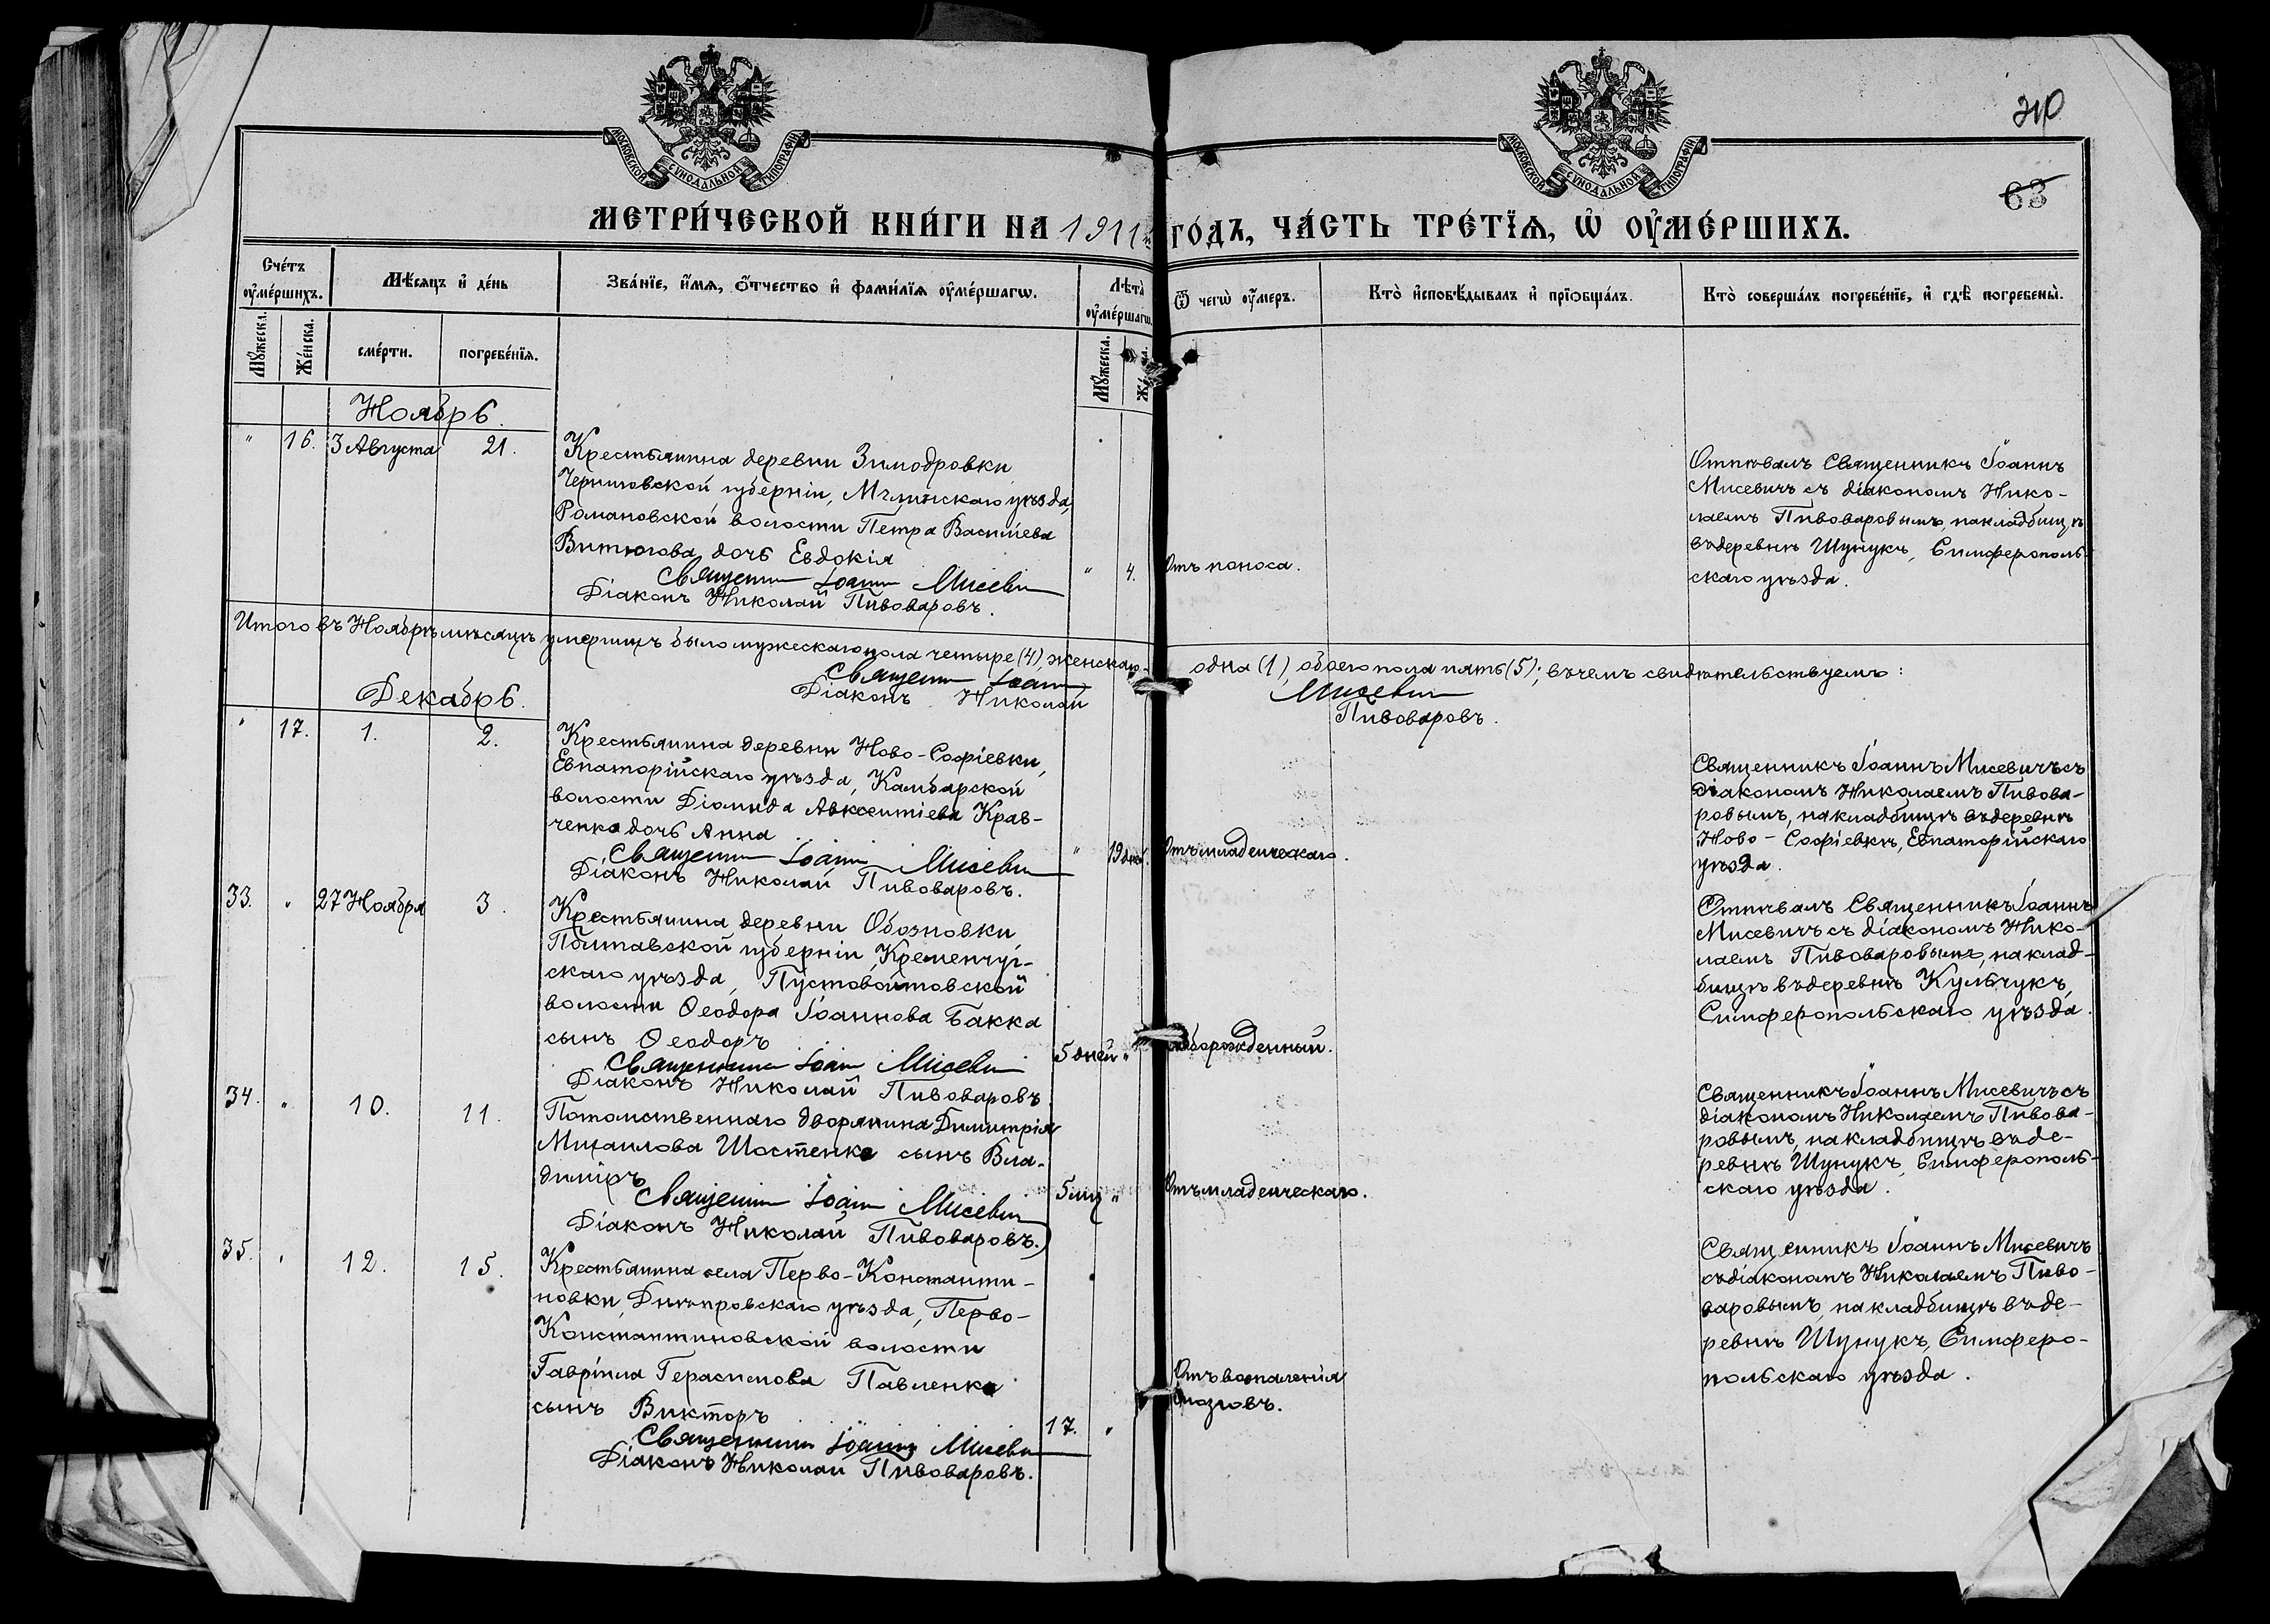 МОСКОВСКОЙ СѴНОДАЛЬНОЙ ТИПОГРАФІИ
МОСКОВСКОЙ СѴНОДАЛЬНОЙ ТИПОГРАФІИ
63
МЕТРИ́ЧЕСКОЙ КНИ́ГИ НА 1911й ГО́ДЪ, ЧА́СТЬ ТРЕ́ТЇѦ, Ѡ҆ ОУ҆МЕ́РШИХЪ.
Сче́тъ оу҆ме́ршихъ.
Мѣ́сяцъ и҆ де́нь
Зва́нїе, и҆́мѧ, ѻ҆́тчество и҆ фами́лїѧ оу҆ме́ршагѡ.
Лѣта̀ оу҆ме́ршагѡ.
Ѿ чегѡ̀ оу҆́меръ.
Кто̀ и҆сповѣ́дывалъ и҆ прїѻбща́лъ.
Кто̀ соверша́лъ погребе́нїе, и҆ гдѣ̀ погребены̀.
Мꙋ́жеска.
Же́нска.
сме́рти.
погребе́нїѧ.
Мꙋ́жеска.
Ноябрь.
" 16. 3 Августа 21.
Крестьянина деревни Зимодровки,
Черниговской губерніи, Мглинскаго уѣзда,
Романовской волости Петра Василіева
Витюгова дочь Евдокія
" 4.
Отъ поноса.
Священник Іоанн Мисевич
Діаконъ Николай Пивоваровъ.
Отпѣвалъ Священникъ Іоаннъ
Мисевичъ съ діакономъ Нико-
лаемъ Пивоваровымъ, на кладбищѣ
въ деревнѣ Шунукъ, Симферополь-
скаго уѣзда.
Итого въ Ноябрѣ мѣсяцѣ умершихъ было мужескаго пола четыре (4), женскаго - одна (1), обоего пола пять (5); въ чемъ свидѣтельствуемъ:
Священник Іоанн Мисевич
Діаконъ Николай Пивоваровъ.
Декабрь.
" 17. 1. 2.
Крестьянина деревни Ново-Софіевки,
Евпаторійскаго уѣзда, Камбарской
волости Діомида Авксентіева Крав-
ченко дочь Анна
" 19 дней.
Отъ младенческаго.
Священник Іоанн Мисевич
Діаконъ Николай Пивоваровъ.
Священникъ Іоаннъ Мисевичъ съ
діакономъ Николаемъ Пивова-
ровымъ, на кладбищѣ въ деревнѣ
Ново-Софіевкѣ, Евпаторійскаго
уѣзда.
33. " 27 Ноября 3.
Крестьянина деревни Обозновки,
Полтавской губерніи, Кременчуг-
скаго уѣзда, Пустовойтовской
волости Ѳеодора Іоаннова Бакка
сынъ Ѳеодоръ
5 дней "
Священник Іоанн Мисевич
Діаконъ Николай Пивоваровъ.
Отпѣвалъ Священникъ Іоаннъ
Мисевичъ съ діакономъ Нико-
лаемъ Пивоваровымъ, на клад-
бищѣ въ деревнѣ Кульчукъ,
Симферопольскаго уѣзда.
34. " 10. 11.
Потомственнаго дворянина Димитрія
Михаилова Шостенко сынъ Вла-
диміръ
5 мц "
Отъ младенческаго.
Священник Іоанн Мисевич
Діаконъ Николай Пивоваровъ.
Священникъ Іоаннъ Мисевичъ съ
діакономъ Николаемъ Пивова-
ровымъ, на кладбищѣ въ де-
ревнѣ Шунукъ, Симферополь-
скаго уѣзда.
35. " 12. 15.
Крестьянина села Перво-Константи-
новки, Днѣпровскаго уѣзда, Перво-
Константиновской волости
Гавріила Герасимова Павленко
сынъ Викторъ
17. "
Отъ воспаленія
мозговъ.
Священник Іоанн Мисевич
Діаконъ Николай Пивоваровъ.
Священникъ Іоаннъ Мисевичъ
съ діакономъ Николаемъ Пиво-
варовымъ, на кладбищѣ въ де-
ревнѣ Шунукъ, Симферо-
польскаго уѣзда.